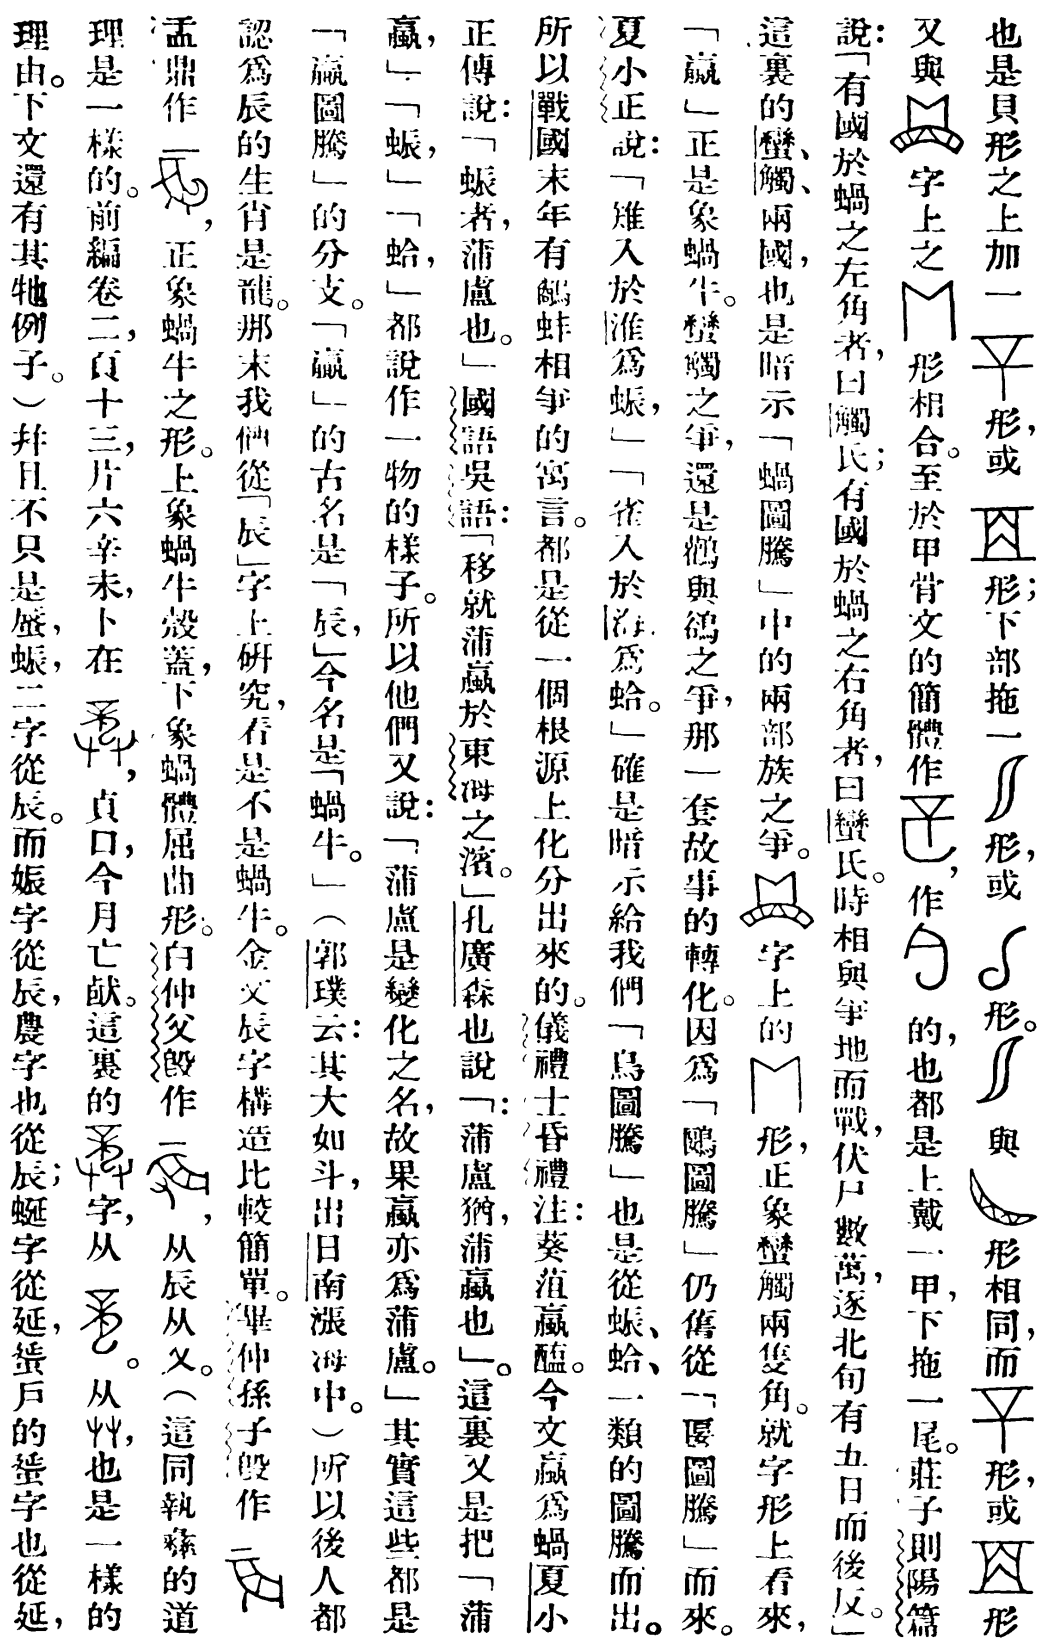 也是貝形之上加一形，或形；下部拖一形，或形。與形相同，而形，或形
又與字上之形相合。至於甲骨文的簡體作，作的，也都是上戴一甲，下拖一尾。莊子則陽篇
說：「有國於蝸之左角者，曰觸氏；有國於蝸之右角者，曰蠻氏。時相與爭地而戰，伏尸數萬，逐北旬有五日而後反。」
這裏的蠻、觸、兩國，也是暗示「蝸圖騰」中的兩部族之爭。字上的形，正象蠻觸兩隻角。就字形上看來，
「蠃」正是象蝸牛。蠻觸之爭，還是鷸與鴿之爭，那一套故事的轉化。因爲「鷗圖騰」仍舊從「匽圖騰」而來。
夏小正說：「雉入於淮爲蜃，」「雀入於海爲蛤。」確是暗示給我們「鳥圖騰」也是從蜃、蛤、一類的圖騰而出。
所以戰國末年有鷸蚌相爭的寓言。都是從一個根源上化分出來的。儀禮士昏禮注：葵菹蠃醢。今文蠃爲蝸夏小
正傳說：「蜃者，蒲盧也。」國語吳語：「移就蒲蠃於東海之濱。」孔廣森也說：「蒲盧猶，蒲蠃也」。這裏又是把「蒲
蠃，」「蜃，」「蛤，」都說作一物的樣子。所以他們又說：「蒲盧是變化之名，故果蠃亦爲蒲盧。」其實這些都是
「蠃圖騰」的分支。「蠃」的古名是「辰，」今名是「蝸牛。」（郭璞云：其大如斗，出日南漲海中。）所以後人都
認爲辰的生肖是龍。那末我們從「辰」字上研究，看是不是蝸牛。金文辰字構造比較簡單。畢仲孫子毁作
盂鼎作，正象蝸牛之形。上象蝸牛殼蓋，下象蝸體屈曲形。白仲父毁作，从辰从又。（這同執彝的道
理是一樣的。前編卷二，頁十三，片六辛未，卜在，貞口，今月亡猷。這裏的字，从。从艸，也是一樣的
理由。下文還有其牠例子。）幷且不只是蜃，蜄，二字從辰。而娠字從辰，農字也從辰；蜒字從延，蜑戶的蜑字也從延，